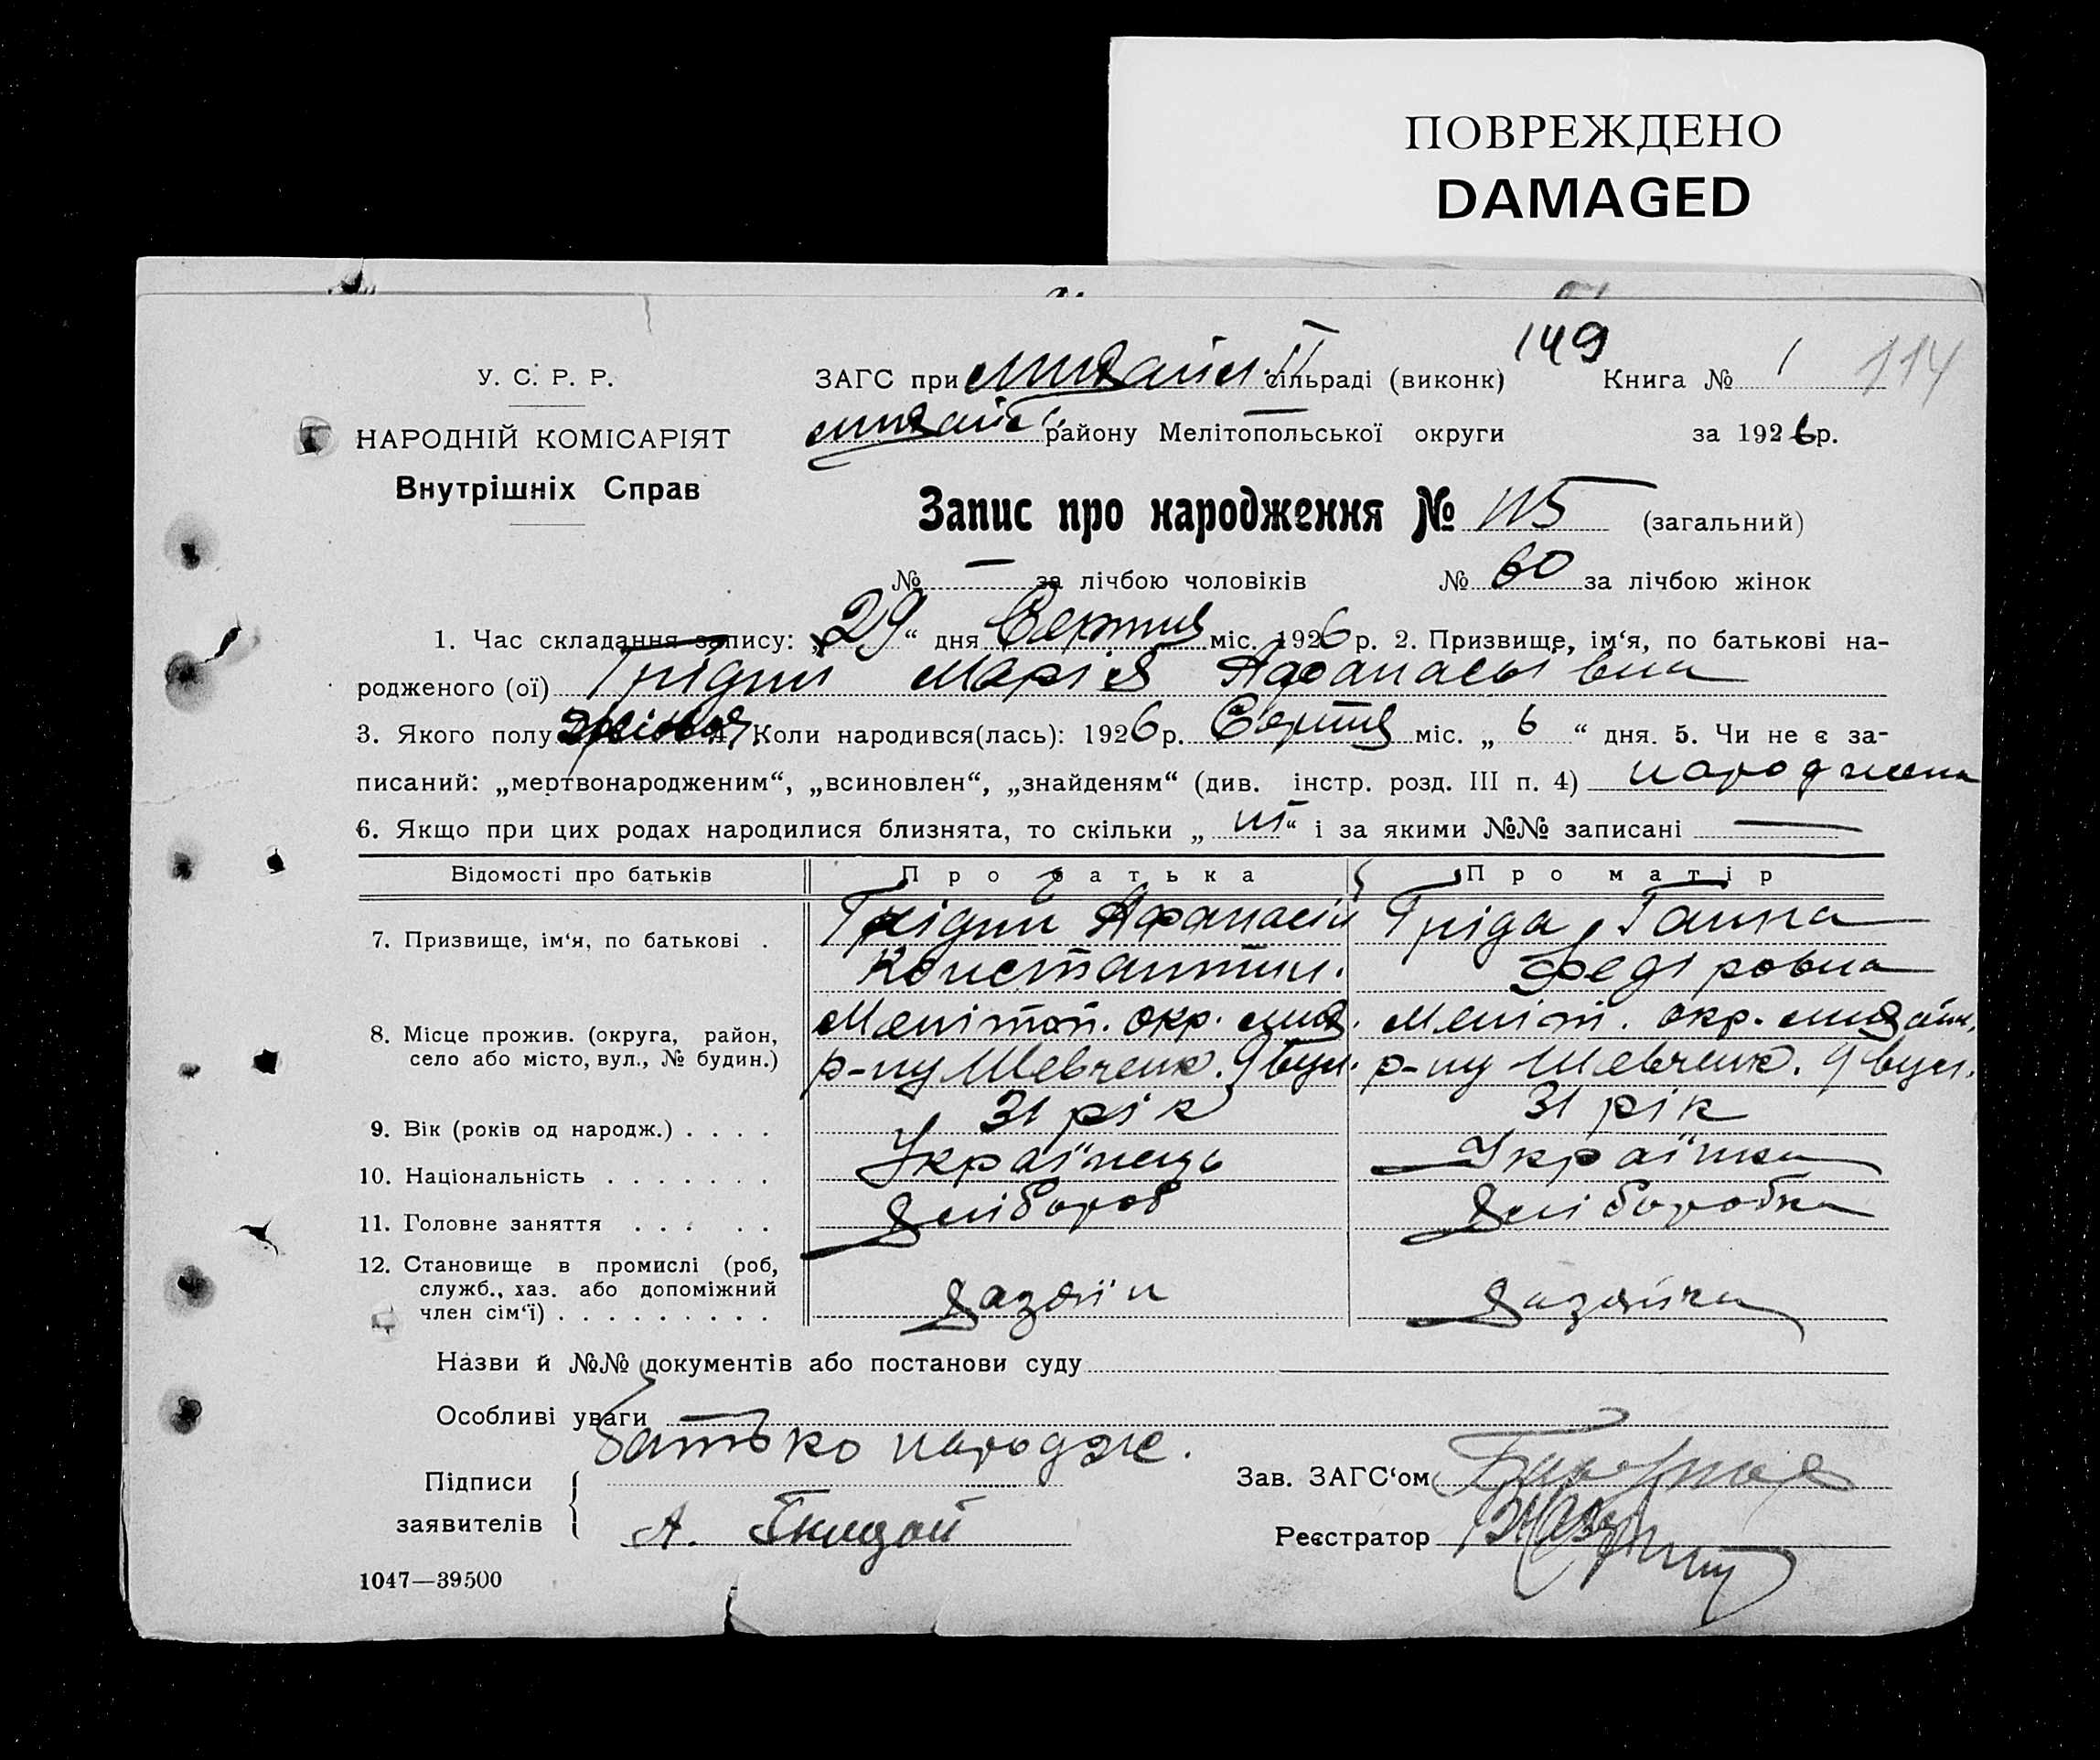 ПОВРЕЖДЕНО
DAMAGED
149
У. С. Р. Р.
ЗАГС при Михайл. сільраді (виконк) Книга № 1 114
НАРОДНІЙ КОМІСАРІЯТ
Михайл. району Мелітопольської округи за 1926 р.
Внутрішніх Справ
Запис про народження № 115 (загальний)
№ — за лічбою чоловіків № 60 за лічбою жінок
1. Час складання запису: „29“ дня Серпня міс. 1926 р. 2. Призвище, ім‘я, по батькові на-
родженого (ої) Грідин Марія Афанасьівна
3. Якого полу жіноч. 4. Коли народився(лась): 1926 р. Серпня міс. „ 6 “ дня. 5. Чи не є за-
писаний: „мертвонародженим“, „всиновлен“, „знайденям“ (див. інстр. розд. III п. 4) народжена
6. Якщо при цих родах народилися близнята, то скільки „ “ і за якими №№ записані —
Відомості про батьків Про батька Про матір
7. Призвище, ім‘я, по батькові . Грідин Афанасій Гріда Ганна
Константин. Федіровна
8. Місце прожив. (округа, район, Мелітоп. окр. мих. Меліт. окр. михайл.
село або місто, вул., № будин.) р-ну Шевченк. 9 вул. р-ну Шевченк. 9 вул.
9. Вік (років од народж.) . . . . 31 рік 31 рік
10. Національність . . . . . . . Українець Українка
11. Головне заняття . . . . . Хлібороб Хліборобка
12. Становище в промислі (роб,
служб., хаз. або допоміжний
член сім‘ї) . . . . . . . . . Хазяїн Хазяйка
Назви й №№ документів або постанови суду
Особливі уваги
батько народж.
Підписи
заявителів
А.
Зав. ЗАГС‘ом
Реєстратор
1047—39500